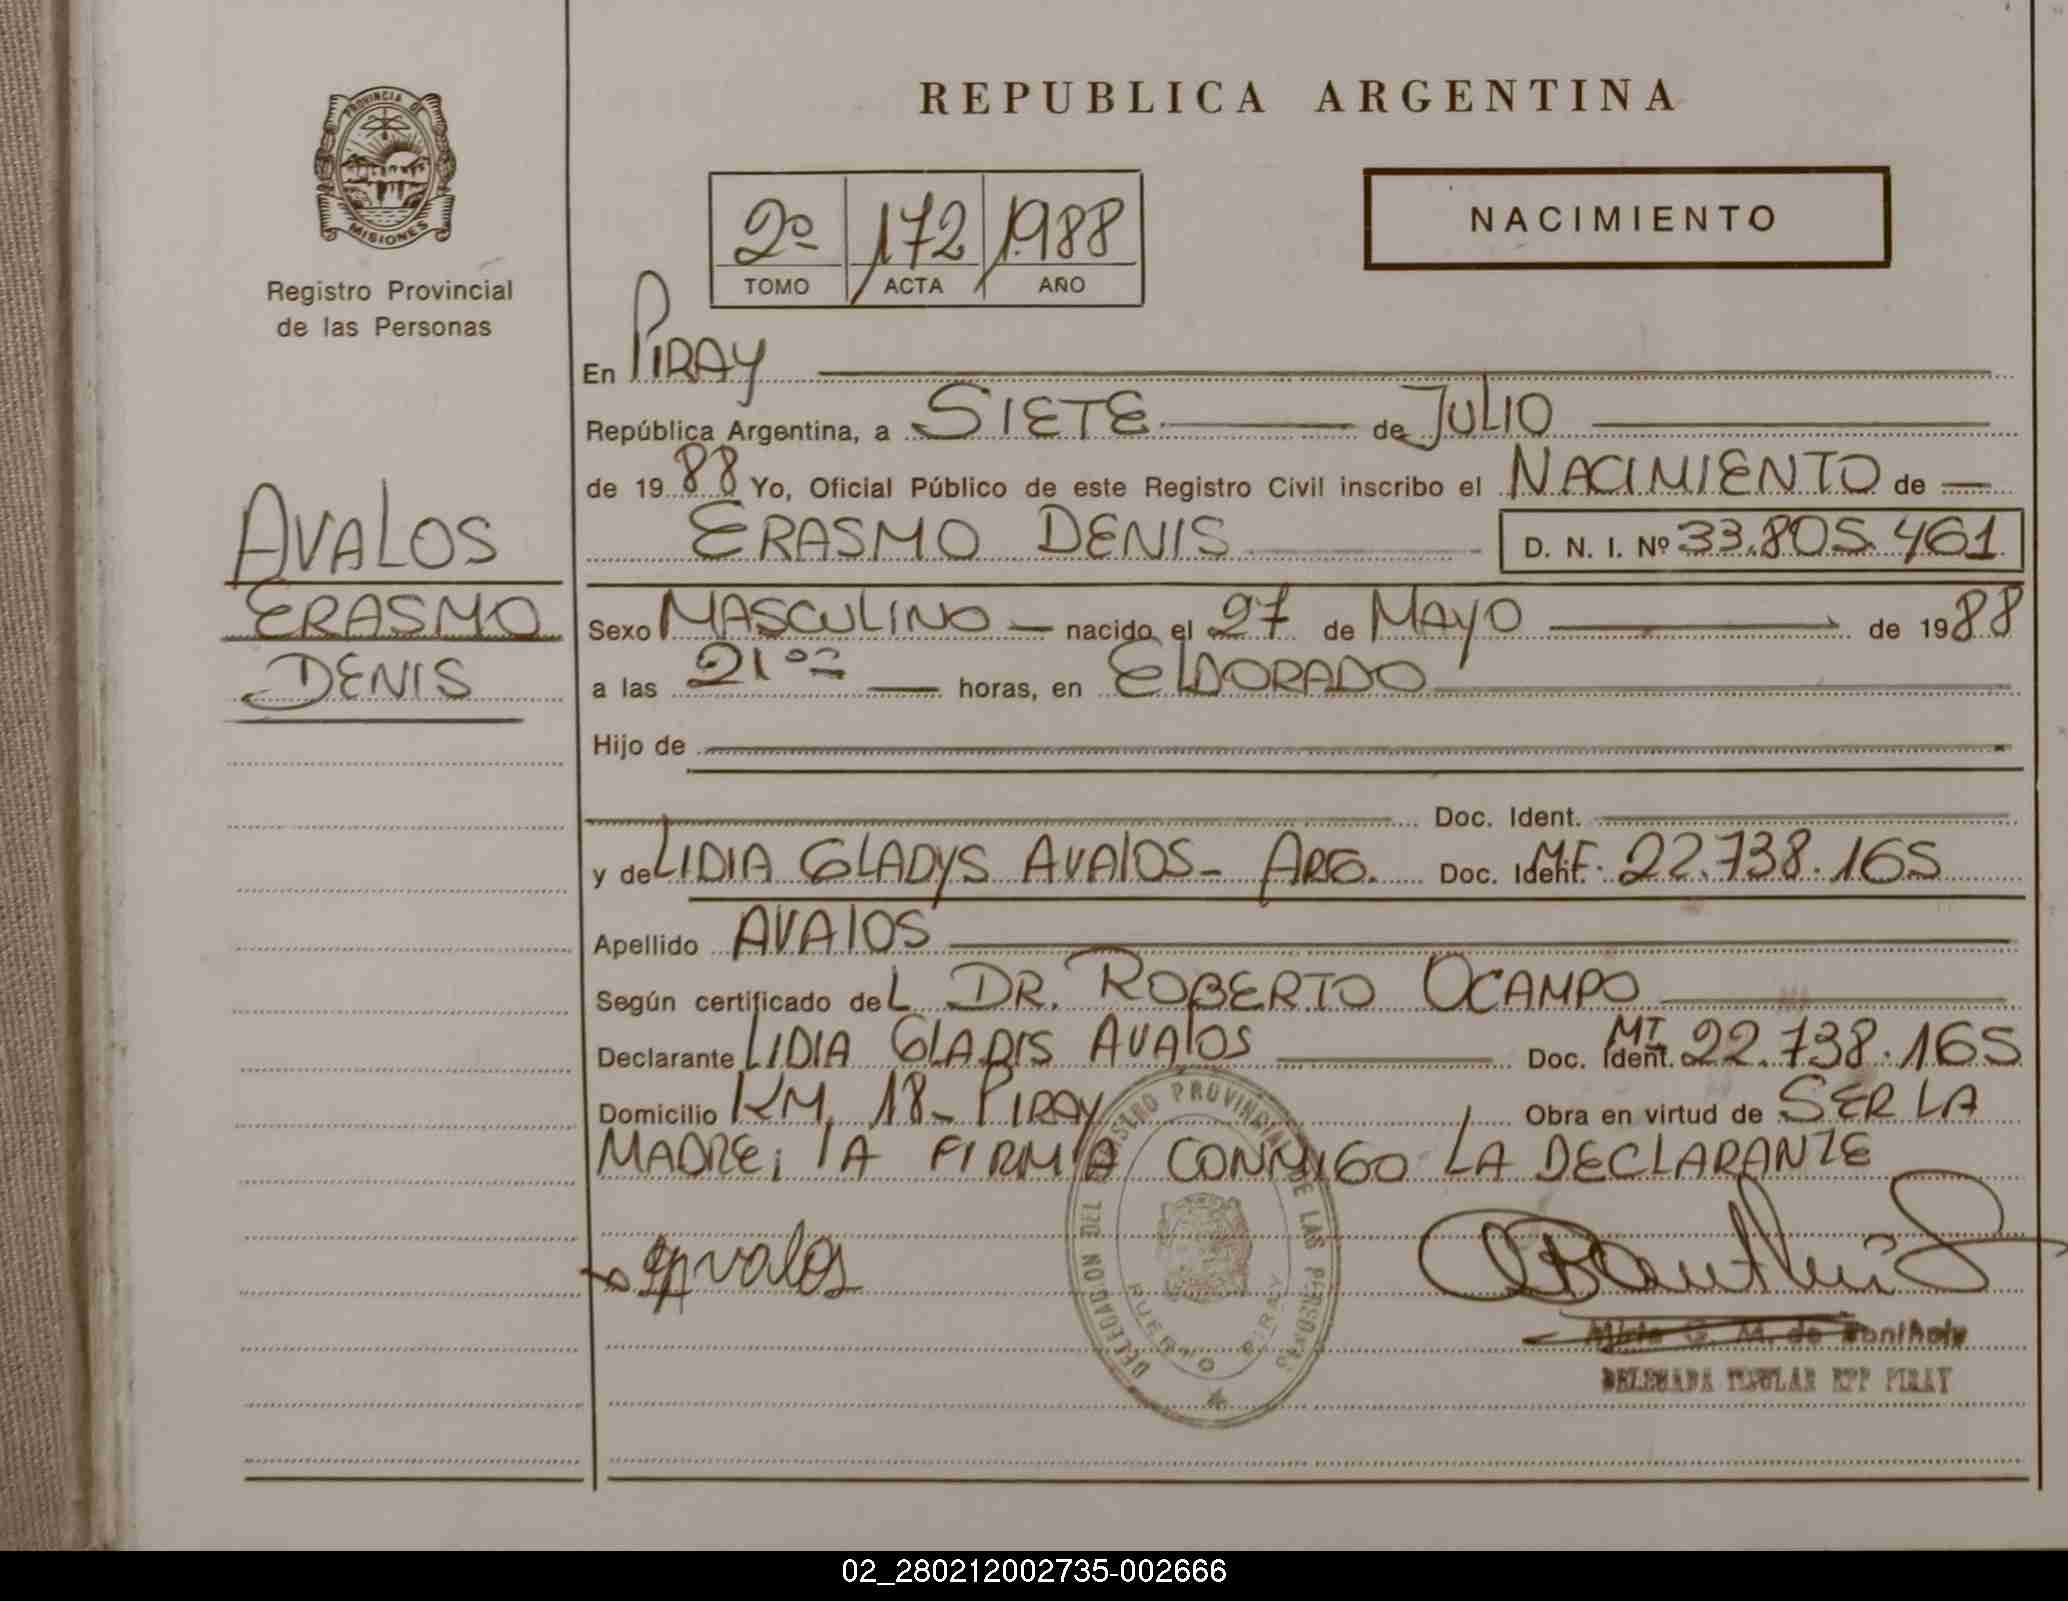 PROVINCIA DE
MISIONES
Registro Provincial
de las Personas
AVALOS
ERASMO
DENIS
REPUBLICA ARGENTINA
2º 172 1988
TOMO ACTA AÑO
NACIMIENTO
En PIRAY
República Argentina, a SIETE de JULIO
de 1988 Yo, Oficial Público de este Registro Civil inscribo el NACIMIENTO de
ERASMO DENIS D. N. I. Nº 33.805.461
Sexo MASCULINO nacido el 27 de MAYO de 1988
a las 21 oo horas, en ELDORADO
Hijo de
Doc. Ident.
y de LIDIA GLADYS AVALOS - ARG. Doc. Ident. MF. 22.738.165
Apellido AVALOS
Según certificado deL DR. ROBERTO OCAMPO
Declarante LIDIA GLADIS AVALOS Doc. Ident. MI 22.738.165
Domicilio KM. 18 - PIRAY Obra en virtud de SER LA
MADRE; LA FIRMA CONMIGO LA DECLARANTE
REGISTRO PROVINCIAL DE LAS PERSONAS
PUERTO PIRAY
DELEGADA TITULAR RPP PIRAY
02_280212002735-002666